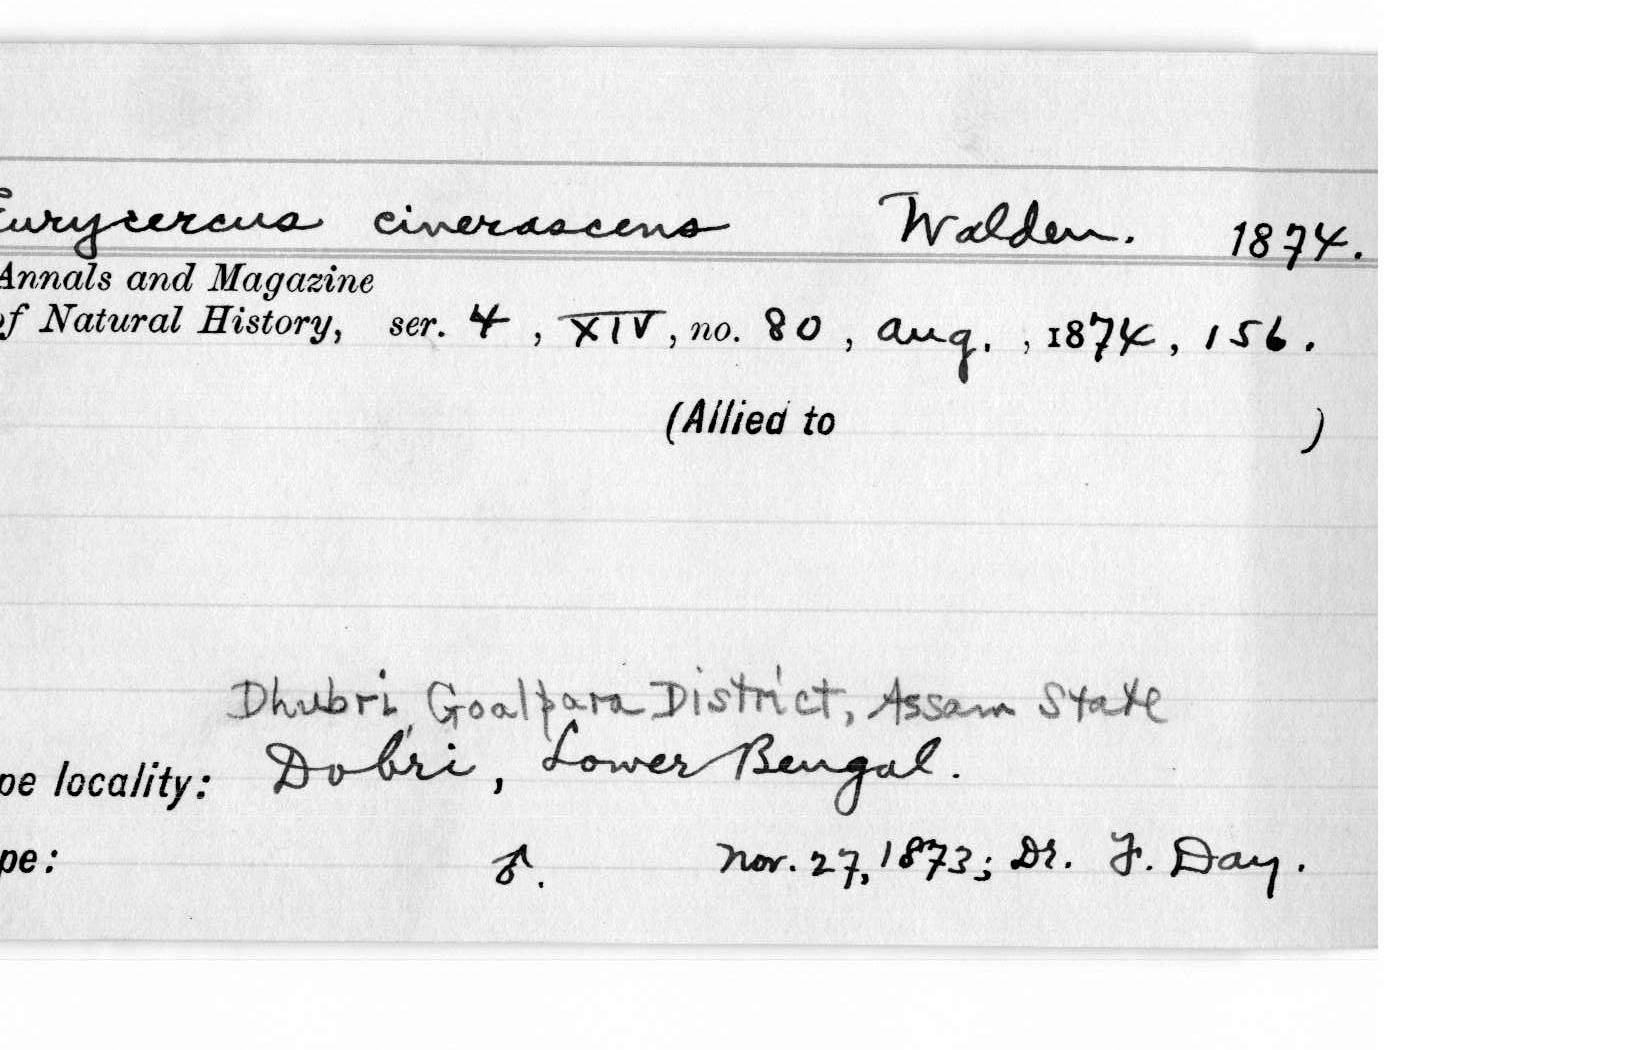 Eurycercus cinerascens Walden. 1874.
Annals and Magazine
of Natural History, ser. 4, XIV, no. 80, Aug., 1874, 156.
(Allied to )
Dhubri, Goalpara District, Assam State
pe locality: Dobri, Lower Bengal.
pe: ♂. Nov. 27, 1873; Dr. F. Day.